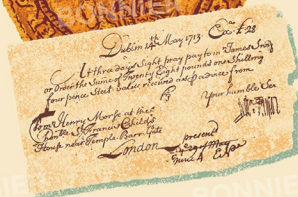 BONNIER
Dublin 14th May 1713 Exa. £ 28
At three days Sight pray pay to m James
or Order the Sume of Twenty Eight pounds one Shilling
four pence Sterl value received as p advice from
Your humble Ser
To mr Henry Morse at the
honble Sr Francis Childs
House near Temple Barr Gate
London
present
June 4
BONNIER